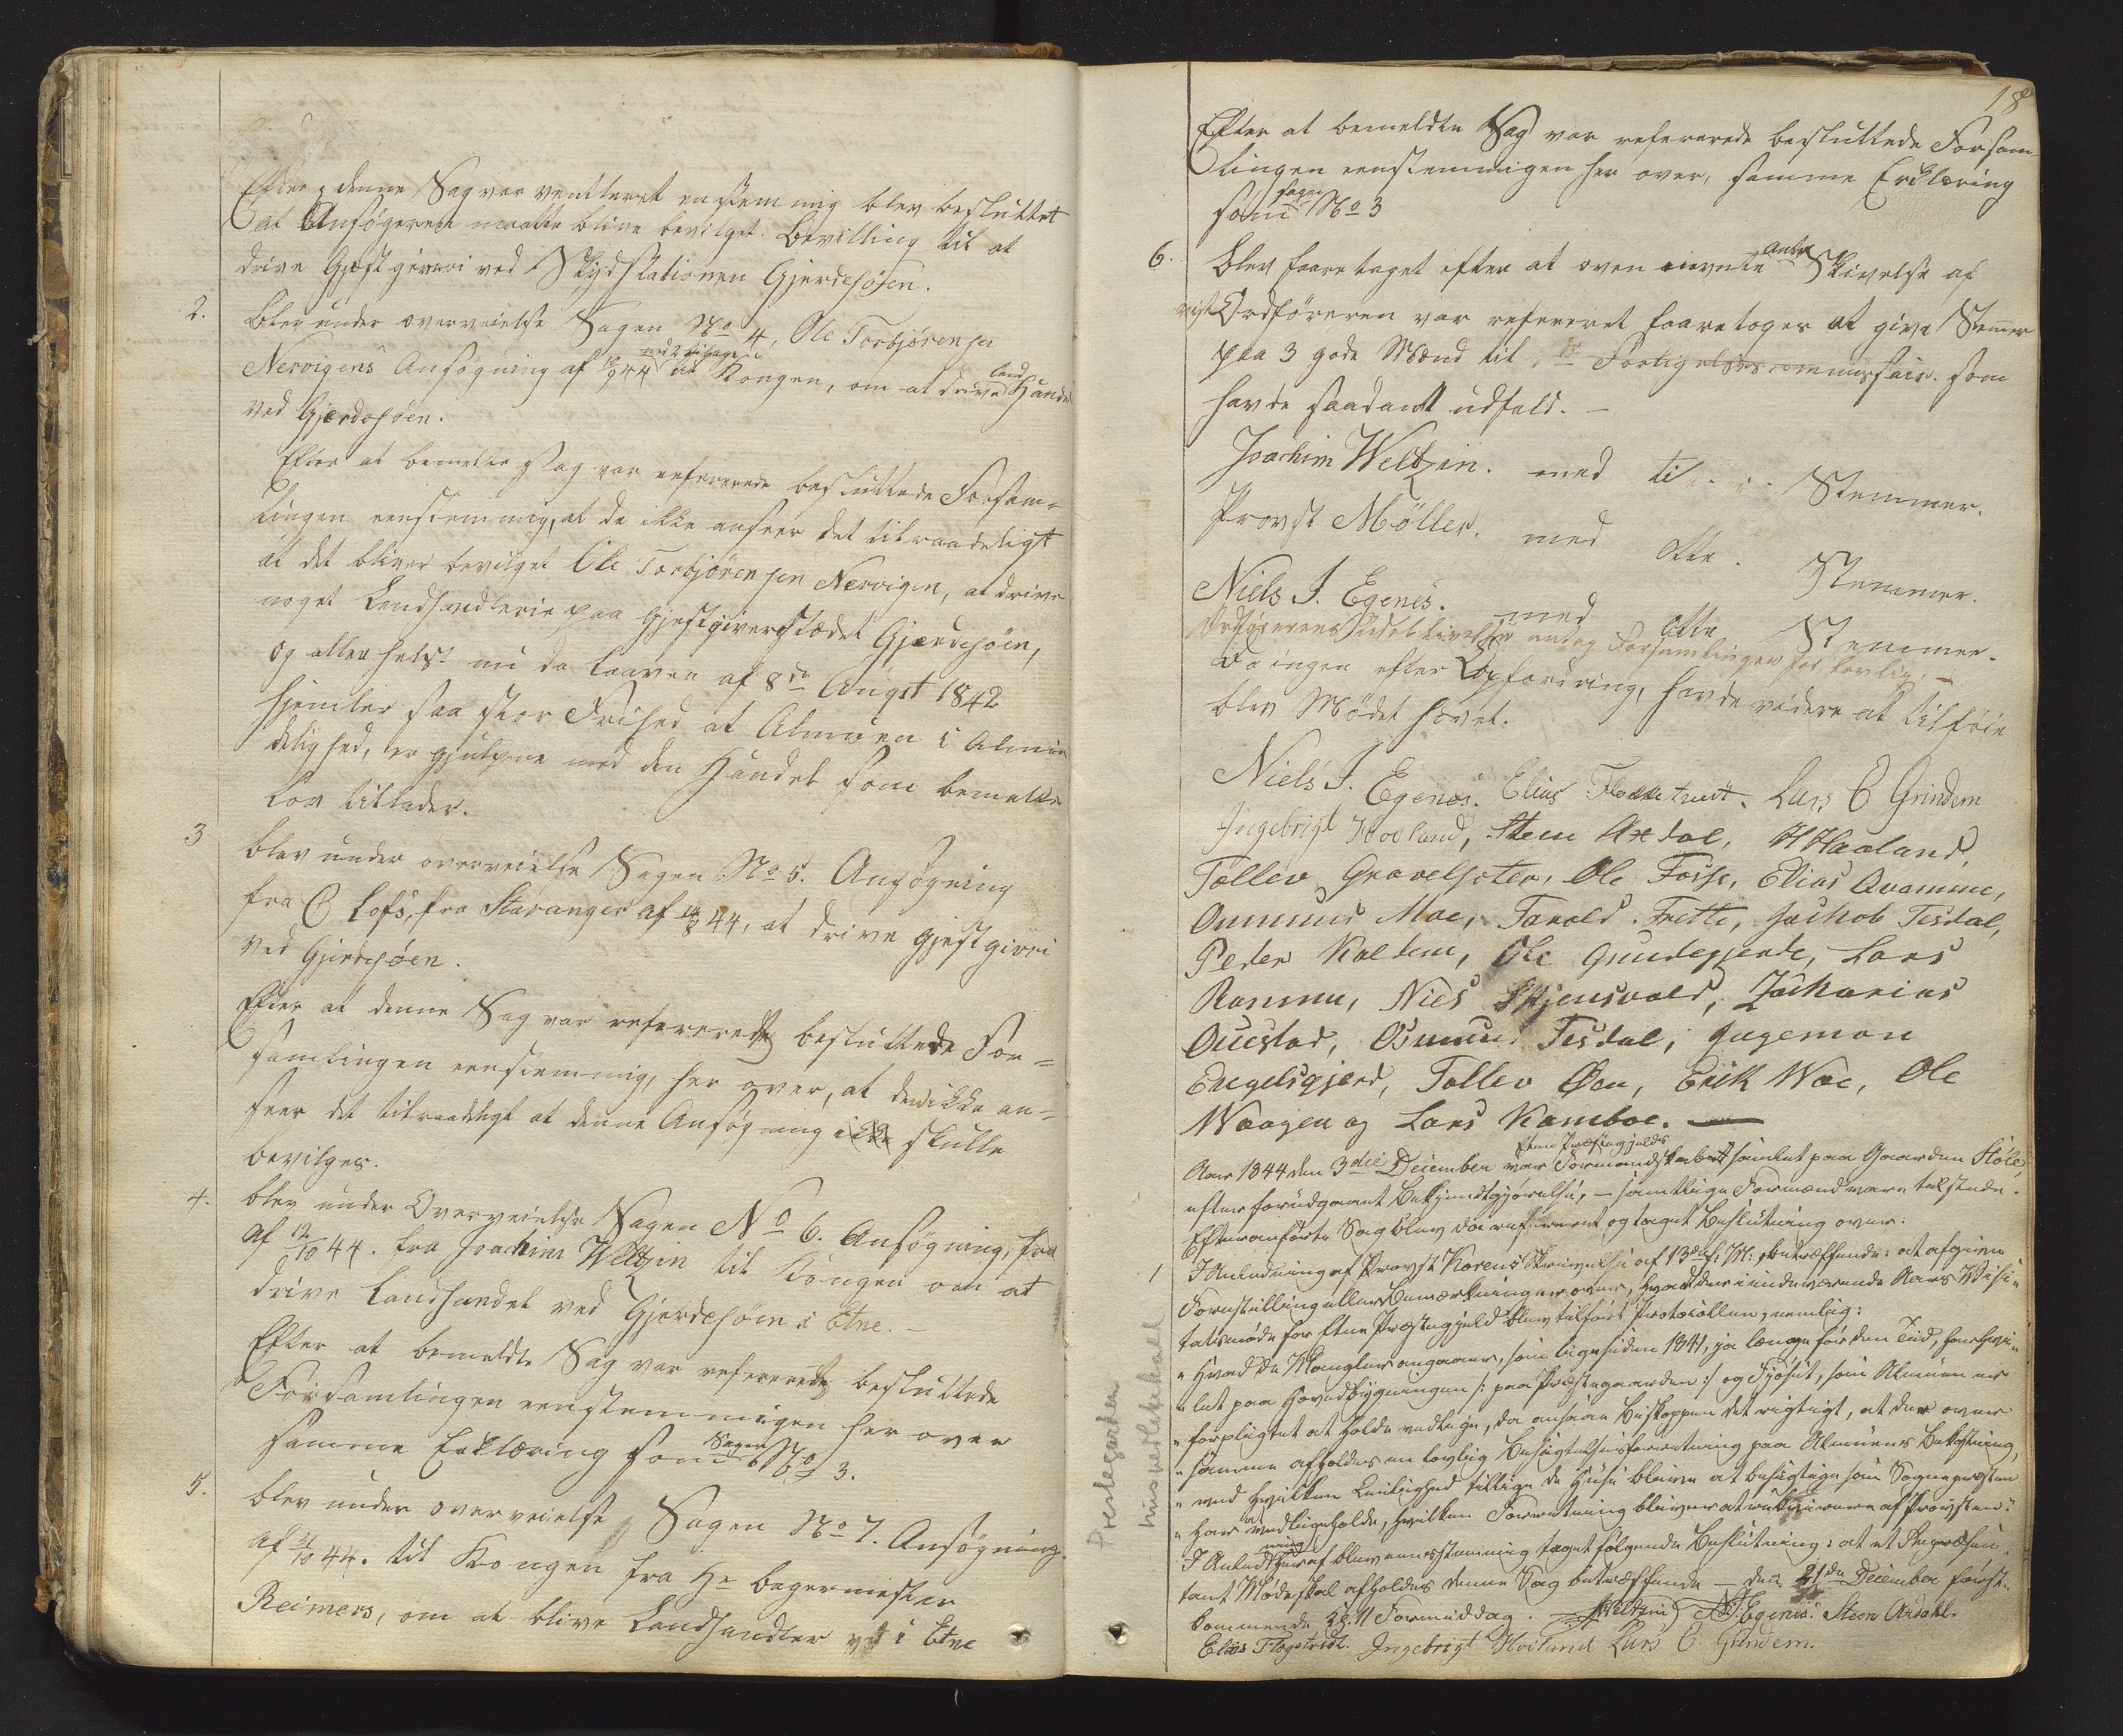 Efter denne Sag var ventileret enstemmig blev besluttet
at Ansøgeren maatte blive bevilget Bevilling til at
drive Gjæstgiveri ved Skydsstationen Gjerdesøen.
2. Blev under overveielse Sagen No 4, Ole Torbjørensen
Nervigens Ansøgning af 44 med 2 bilage til Kongen, om at drive Land Handel
ved Gjerdesøen.
Efter at bemeldte Sag var refererede besluttede Forsam=
lingen eenstemmig, at de ikke anseer det tilraadeligt
at det bliver bevilget Ole Torbjørensen Nervigen, at drive
noget Landhandlerie paa Gjestgiverstædet Gjerdesøen,
og aller helst nu da Loven af 8de August 1842
hjemler saa stor Frihed at Almuen i Almin
delighed, er hjulpne med den Handel som bemeldte
Lov tillader.
3 Blev under overveielse Sagen No 5. Ansøgning
fra C Lofs, fra Stavanger af 44, at drive Gjestgiveri
ved Gjerdesøen.
Efter at denne Sag var refererede besluttede For=
samlingen eenstemmig, her over, at de ikke an=
seer det tilraadeligt at denne Ansøgning ikke skulle
bevilges.
4. Blev under Overveielse Sagen No 6. Ansøgning, fra
af 12/10 44. fra Joachim Weltzin til Kongen om at
drive Landhandel ved Gjerdesøen i Etne.—
Efter at bemeldte Sag var refererede besluttede
Forsamlingen eenstemmigen her over
samme Erklæring som Sagen No 3.
5. Blev under overveielse Sagen No 7. Ansøgning
af 44. til Kongen fra Hr Bagermester
Reimers, om at blive Landhandler i Etne
18
Efter at bemeldte Sag var refererede besluttede Forsam
lingen eenstemmigen her over, samme Erklæring
som Sagen No 3
6. Blev foretaget efter at oven nevnte Skrivelse af
Ordføreren var refereret foretoges at give Stemer
paa 3 gode Mænd til Forligelsescommissair. som
havde saadant udfald.—
Joachim Weltzin. med ti . . . Stemmer.
Provst Möller. med otte . Stemmer.
Niels J. Egenes. med otte Stemmer.
Ordførerens Udeblivelse antog Forsamlingen for lovlig.—
Da ingen efter Opfordring, havde videre at tilføie
blev Mödet hævet.
Niels J. Egenæs. Elias Flokketvedt. Lars O Grindem
Ingebrigt Hovland, Steen Ardal, H Haaland,
Tollev Gravelseter, Ole Fosse, Elias Qvamme,
Ommund Moe, Tarald Frette, Jachob Tesdal,
Peder Kaltem, Ole Grindegjerde, Lars
Ramme, Niels Skjensvold, Zacharias
Ouestad, Osmund Tesdal, Ingemon
Engelsgjerd, Tollev Øen, Erik Moe, Ole
Waagen og Lars Kamboe. —
Aar 1844 den 3die December var Etne Præstegjelds Formandskabet samlet paa Gaarden Støle,
efter forudgaaet Bekjendtgjørelse, — samtlige Formænd vare tilstede.
Efteranførte Sag blev da refereret og taget Beslutning over:
1 I Anledning af Provst Korens Skrivelse af 13de f: M: betræffende: at afgive
Forestilling eller Bemærkninger over, hvad der i indeværende Aars Visi=
tatsmøde for Etne Præstegjeld blev tilført Protocollen, nemlig:
"Hvad de Mangler angaaer, som lige siden 1841, ja længe før den Tid, have hvi=
"let paa Hovedbygningen /: paa Præstegaarden :/ og Fjøset, som Almuen er
"forpligtet at holde vedlige, da ansaae Biskoppen det rigtigt, at der over
"samme afholdes en lovlig Besigtelsesforretning paa Almuens Bekostning,
"ved hvilken Leilighed tillige de Huse bliver at besigtige som Sognepresten
"har at vedligeholde, hvilken Forretning bliver at rekvirere af Provsten."
I Anledning heraf blev eenstemmig taget følgende Beslutning: at et Repræsen=
tant Møde skal afholdes denne Sag betræffende — den 21de December først=
kommende Kl. 11 Formiddag. J Weltzin N J. Egenes. Steen Ardahl.
Elias Flogetvedt. Ingebrigt Hovland Lars O Grindem.
Prestegarden
husvedlikehald